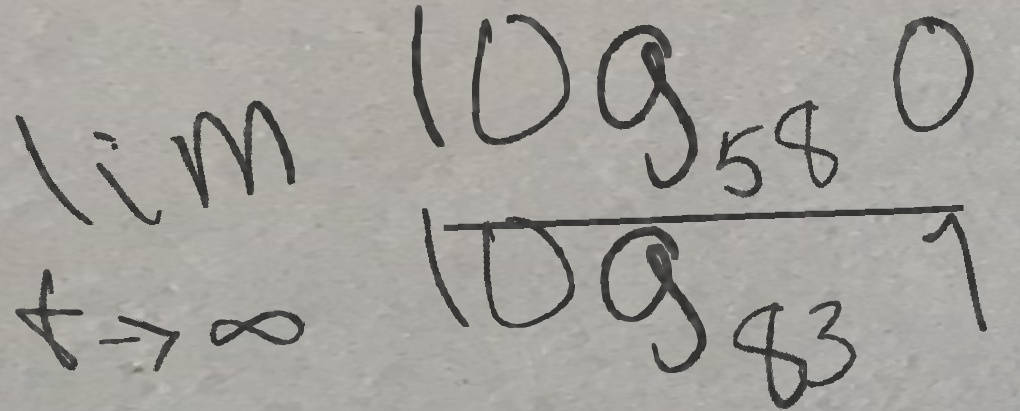 lim log₅₈ 0
t→∞ log₈₃ 1